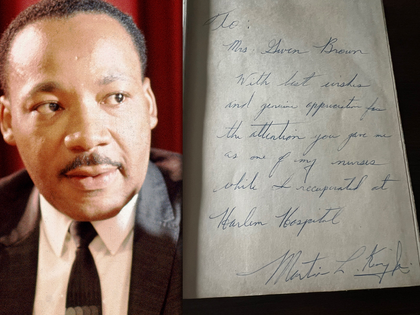 To:
Mrs. Gwen Brown
With best wishes
and genuine appreciation for
the attention you gave me
as one of my nurses
while I recuperated at
Harlem Hospital
Martin L. King Jr.